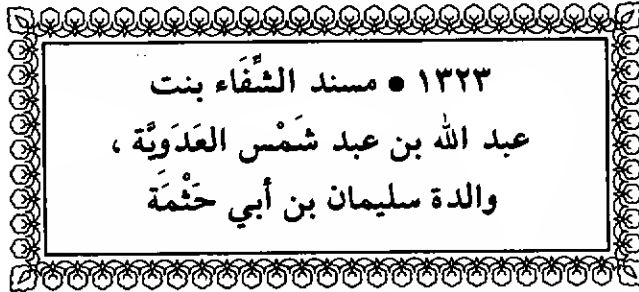 ١٣٢٣ ● مسند الشِّفَاء بنت
عبد الله بن عبد شَمْس العَدَوِيَّة ،
والدة سليمان بن أبي حَثْمَة